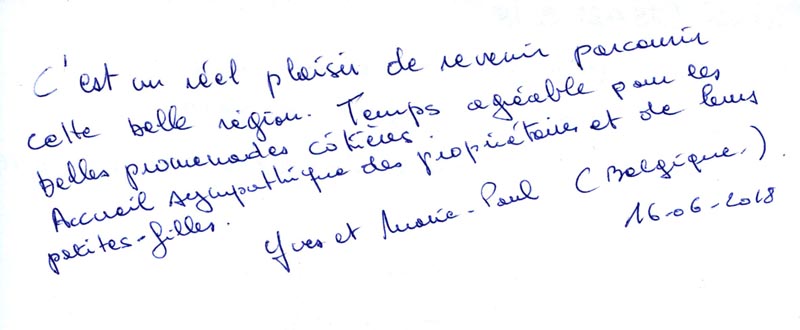 C'est un réel plaisir de revenir parcourir
cette belle région. Temps agréable pour les
belles promenades côtières.
Accueil sympathique des propriétaires et de leurs
petites-filles.
Yves et Marie-Paul (Belgique.)
16-06-2018